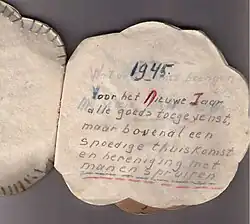 1945
Voor het Nieuwe Jaar
alle goeds toegewenst,
maar bovenal een
spoedige thuiskomst
en hereniging met
man en spruiten